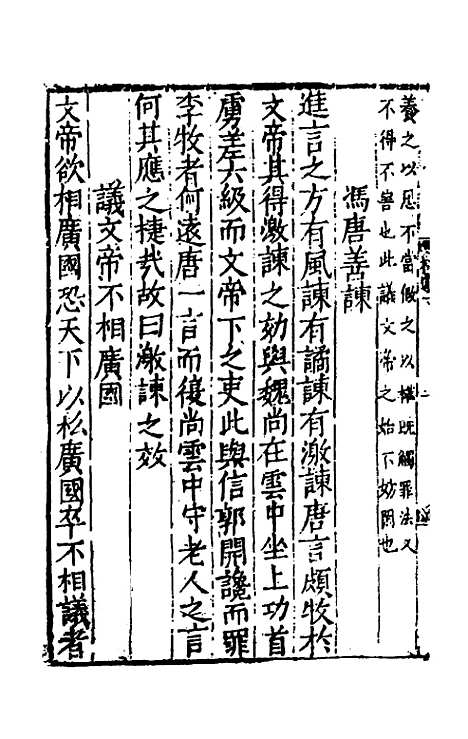 養之以恩不當假之以權既觸罪法又
不得不害也此議文帝之始不妨閑也
馮唐善諫
進言之方有風諫有譎諫有激諫唐言頗牧於
文帝其得激諫之効與魏尚在雲中坐上功首
虜差六級而文帝下之吏此與信郭開讒而罪
李牧者何遠唐一言而復尚雲中守老人之言
何其應之捷哉故曰激諫之效
議文帝不相廣國
文帝欲相廣國恐天下以私廣國卒不相議者